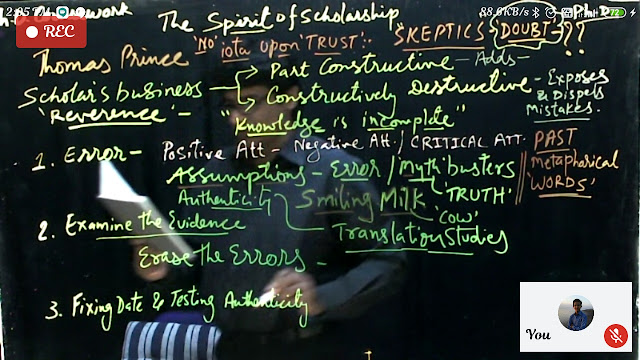 2:05 PM 88.6KB/s 72
REC
work
The Spirit of Scholarship
Ph.D
Thomas Prince "No iota upon 'TRUST'. "SKEPTICS {DOUBT- ??
Scholar's business → Past Constructive - Adds -
→ Constructively Destructive - Exposes & Dispels Mistakes.
'Reverence' - "Knowledge is incomplete"
1. Error - Positive Att - Negative Att. / CRITICAL ATT.
PAST
metapharical
'WORDS'
Assumptions - Error / Myth busters
Authenticity Smiling Milk 'TRUTH'
'COW'
2. Examine the Evidence Translation Studies
Erase the Errors -
3. Fixing Date & Testing Authenticity
You